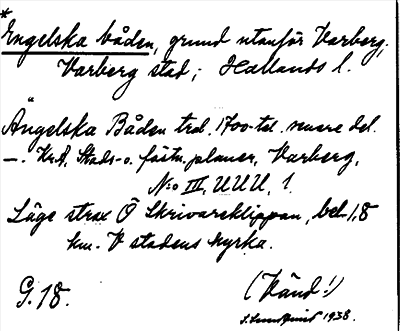 *
Engelska båden, grund utanför Varberg,
Varberg stad; Hallands l.
Ängelska Båden trol. 1700-tal. senare del.
—. KrA, Stads- o. fästn.planer, Varberg,
N:o III, UUU, 1.
Läge strax Ö Skrivareklippan, bel. 1,8
km. V stadens kyrka.
G. 18.
(Vänd!)
1938.